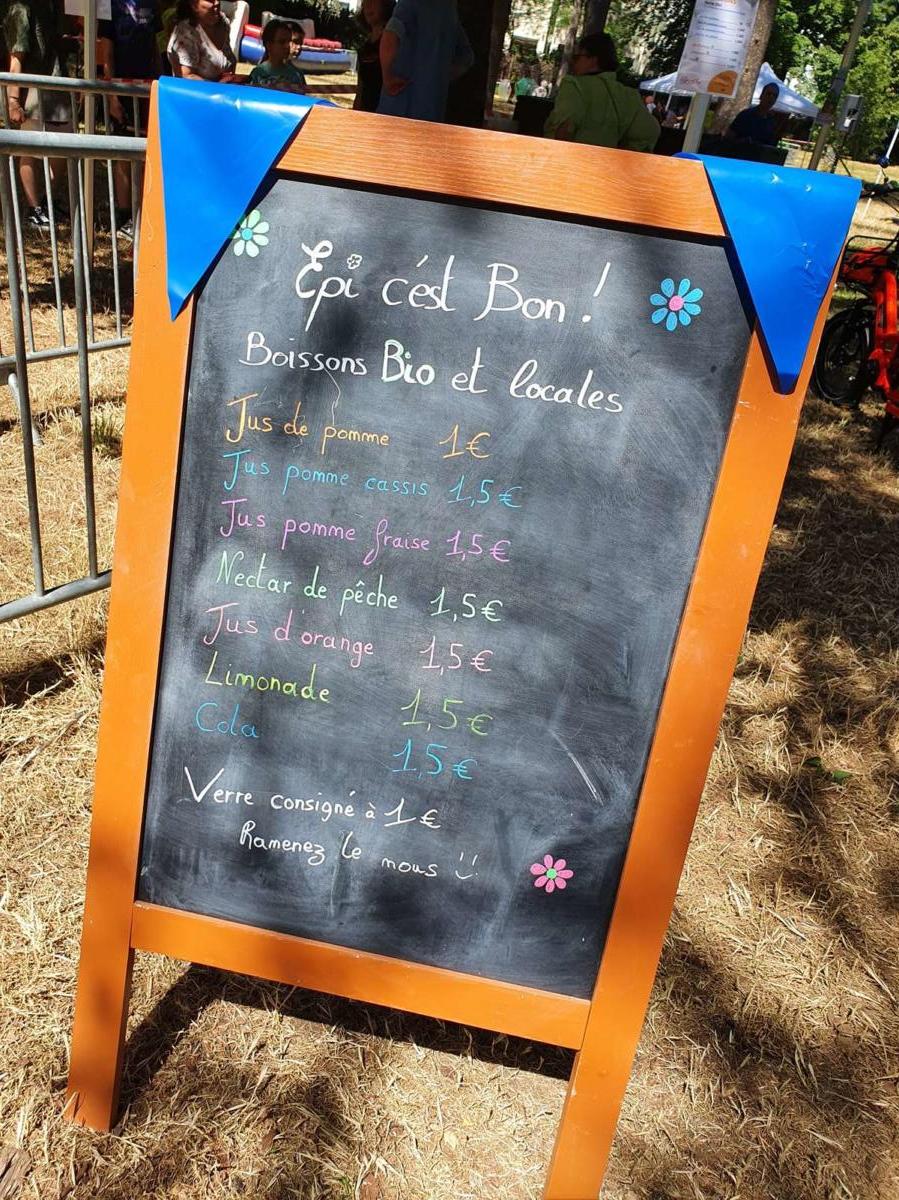 Epi c'est Bon !
Boissons Bio et locales
Jus de pomme 1€
Jus pomme cassis 1,5€
Jus pomme fraise 1,5€
Nectar de pêche 1,5€
Jus d'orange 1,5€
Limonade 1,5€
Cola 1,5€
Verre consigné à 1€
Ramenez le nous